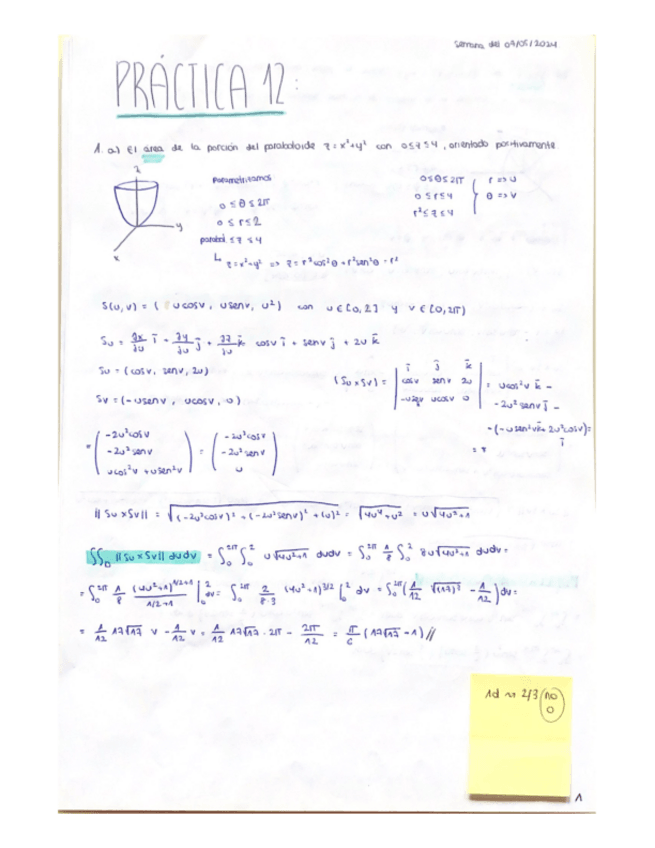 Semana del 09/05/2024
PRÁCTICA 12:
1. a) El área de la porción del paraboloide z = x²+y² con 0≤z≤4, orientado positivamente
z
y
x
Parametrizamos
0 ≤ θ ≤ 2π
0 ≤ r ≤ 2
parabol. ≤ z ≤ 4
z = x²+y² => z = r²cos²θ + r²sen²θ = r²
0≤θ≤2π
0≤r≤4
r²≤z≤4
r => u
θ => v
S(u,v) = ( ucosv, usenv, u²) con u∈[0,2] y v∈[0,2π)
Su = ∂x/∂u i + ∂y/∂u j + ∂z/∂u k cosv i + senv j + 2u k
Su = (cosv, senv, 2u)
Sv = (-usenv, ucosv, 0)
(Su×Sv) = | i j k |
| cosv senv 2u |
| -usenv ucosv 0 |
= ucos²v k -
- 2u² senv j -
- (-usen²v k + 2u²cosv i) =
= (-2u²cosv
-2u²senv
ucos²v + usen²v) = (-2u²cosv
-2u²senv
u)
||Su×Sv|| = √((-2u²cosv)² + (-2u²senv)² + (u)²) = √(4u⁴+u²) = u√(4u²+1)
∬_D ||Su×Sv|| dudv = ∫₀^2π ∫₀² u√(4u²+1) dudv = ∫₀^2π 1/8 ∫₀² 8u√(4u²+1) dudv =
= ∫₀^2π 1/8 (4u²+1)^(1/2+1) / (1/2+1) |₀² dv = ∫₀^2π 2/(8·3) (4u²+1)^(3/2) |₀² dv = ∫₀^2π (1/12 √(17)³ - 1/12) dv =
= 1/12 17√17 v - 1/12 v = 1/12 17√17 · 2π - 2π/12 = π/6 (17√17 - 1) //
1d ~ 2/3 no
1